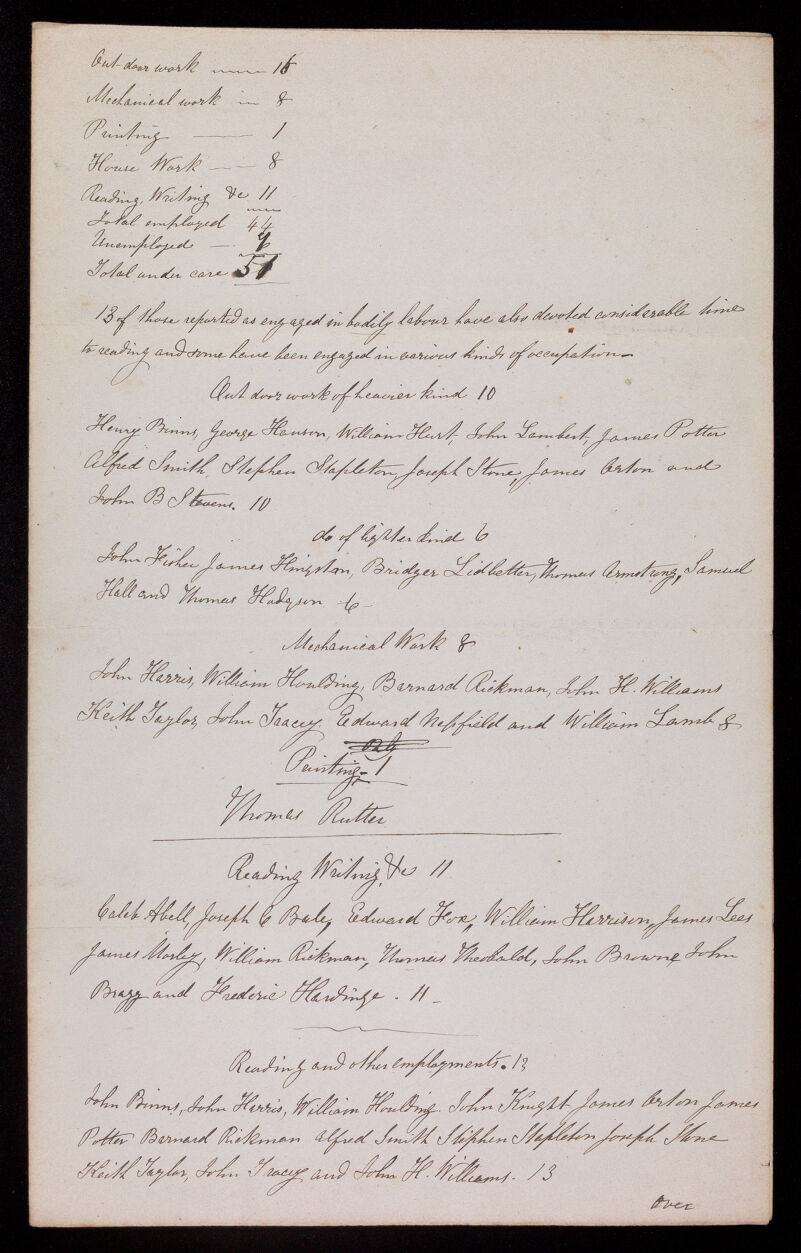 Out door work 16
Mechanical work 8
Printing — 1
House Work — 8
Reading, Writing &c 11
Total employed 44
Unemployed —
Total under care 51
13 of those reported as engaged in bodily labour have also devoted considerable time
to reading and some have been engaged in various kinds of occupation
Out door work of heavier kind 10
Henry Binns, George Hanson, William Hurt, John Lambert, James Potter
Alfred Smith, Stephen Stapleton, Joseph Stone, James Orton and
John B Stevens. 10
do of lighter kind 6
John Fisher James Hingston, Bridger Lidbetter, Thomas Armstrong, Samuel
Hall and Thomas Hodgson 6
Mechanical Work 8
John Harris, William Houlding, Barnard Rickman, John H. Williams
Keith Taylor, John Tracey, Edward and William Lamb 8
Printing - 1
Thomas Rutter
Reading Writing, &c 11
Caleb Abell, Joseph C Edward Fox, William Harrison, James Lees
James Mosley, William Rickman, Thomas Theobald, John Browne John
Bragg and Frederic Hardinge. 11
Reading and other employments. 13
John Binns, John Harris, William Houlding. John Knight James Orton James
Potter Barnard Rickman Alfred Smith Stephen Stapleton Joseph Stone
Keith Taylor, John Tracey and John H. Williams. 13
Over